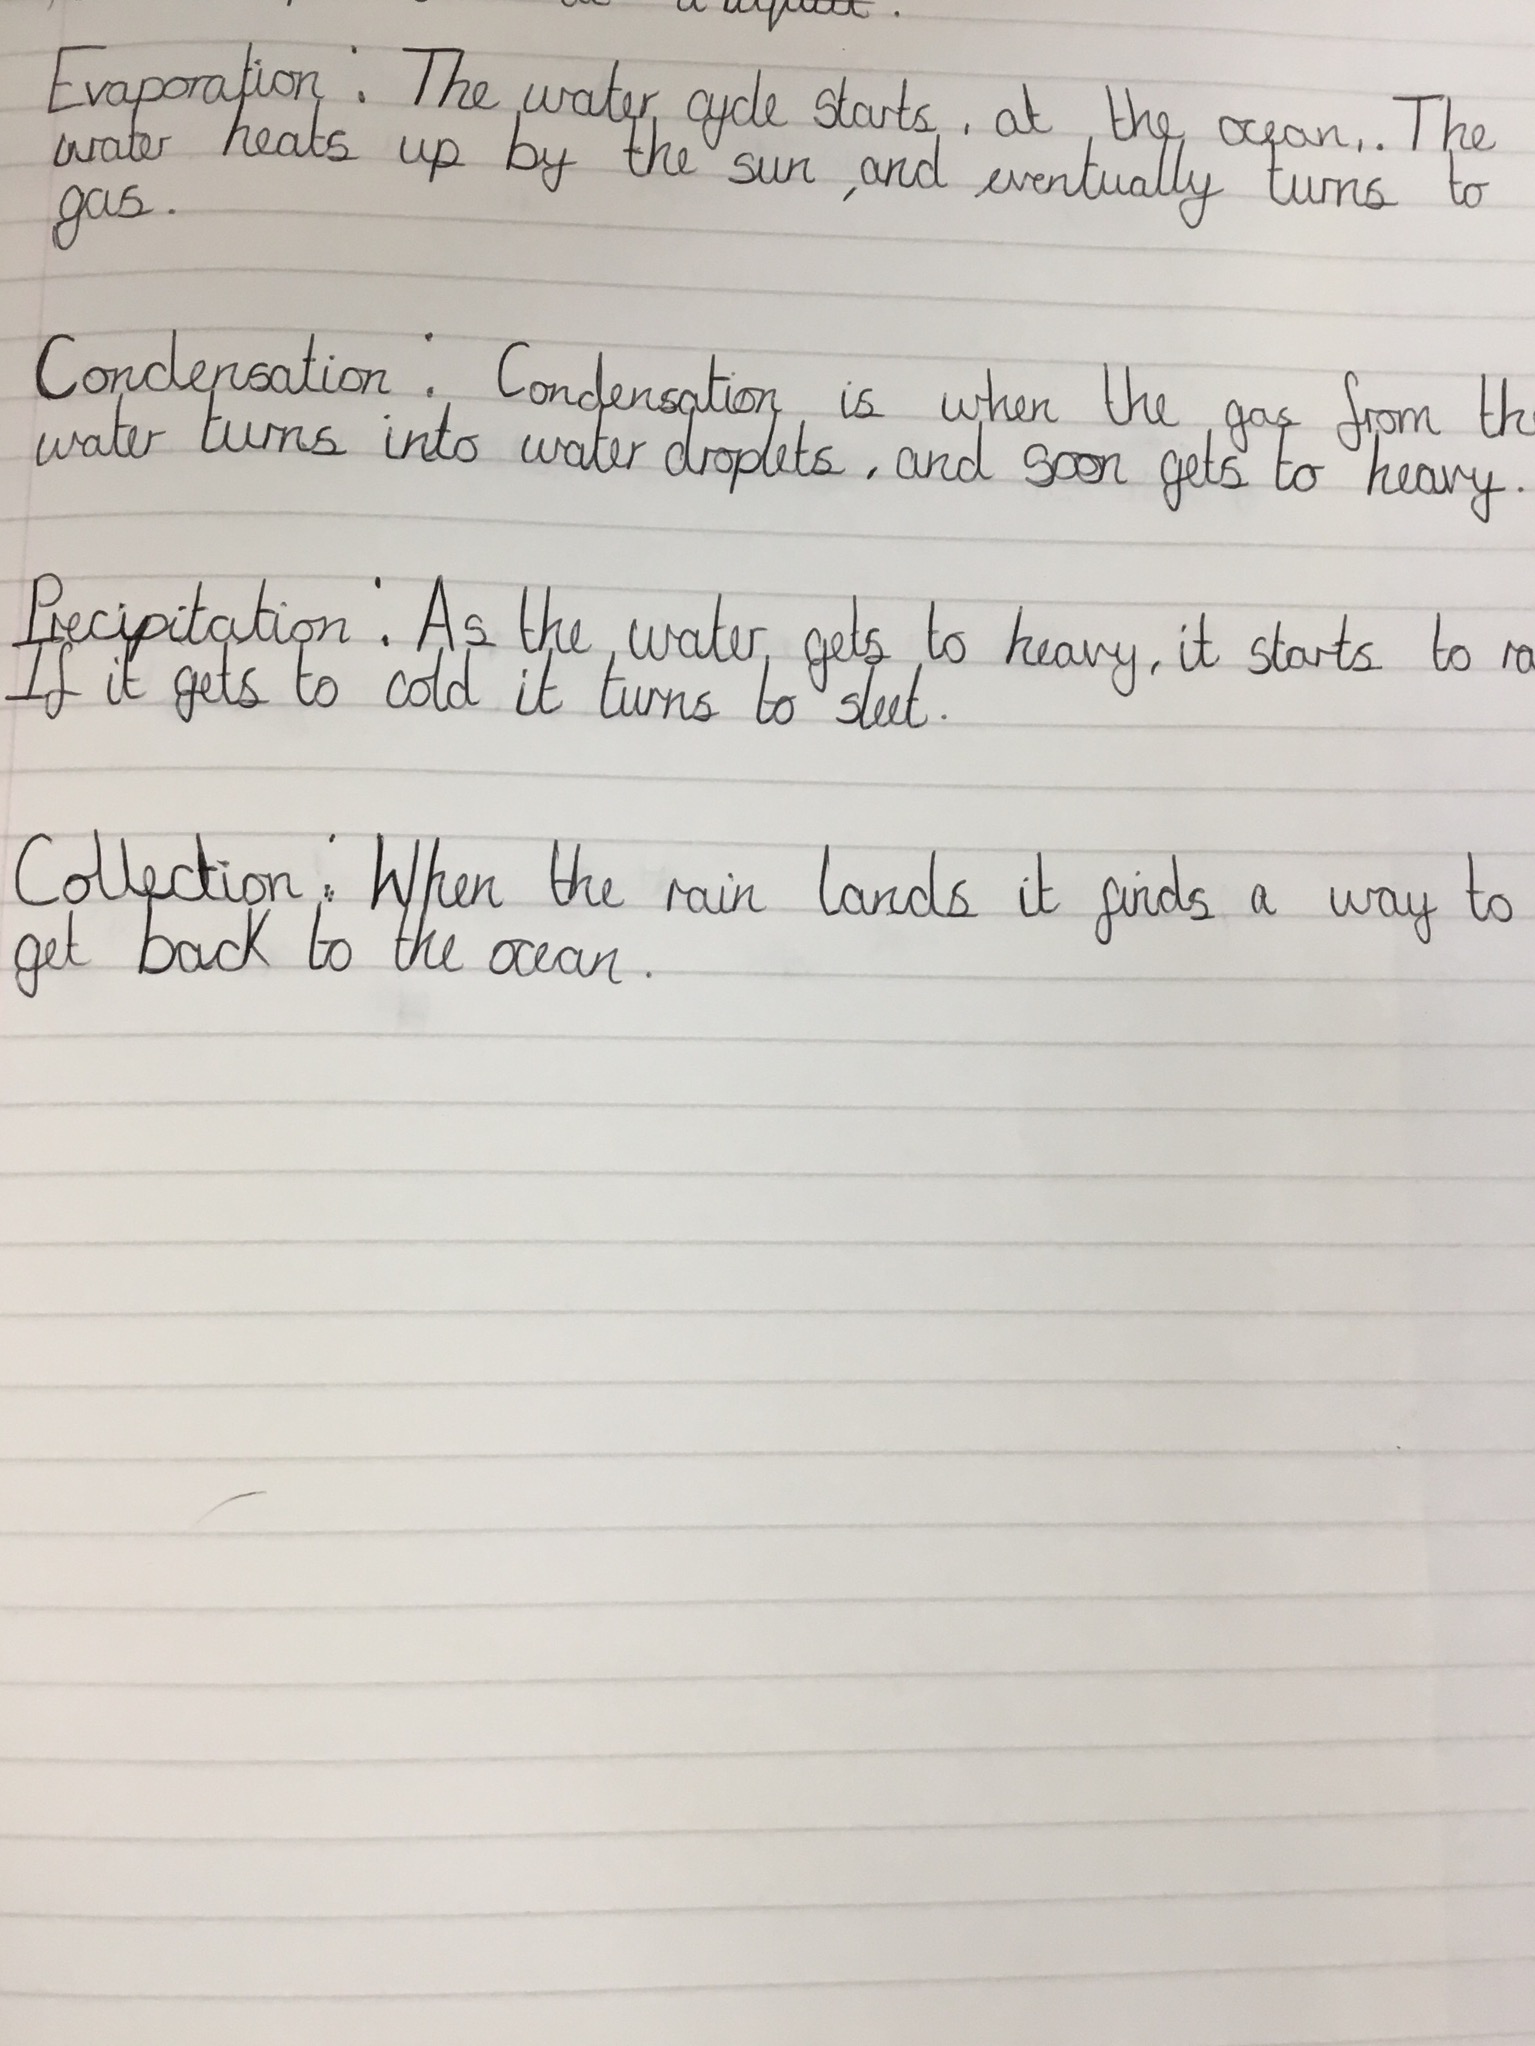 a liquid.
Evaporation: The water cycle starts, at the ocean. The
water heats up by the sun, and eventually turns to
gas.
Condensation: Condensation is when the gas from th
water turns into water droplets, and soon gets to heavy.
Precipitation: As the water gets to heavy, it starts to ra
If it gets to cold it turns to sleet.
Collection: When the rain lands it finds a way to
get back to the ocean.